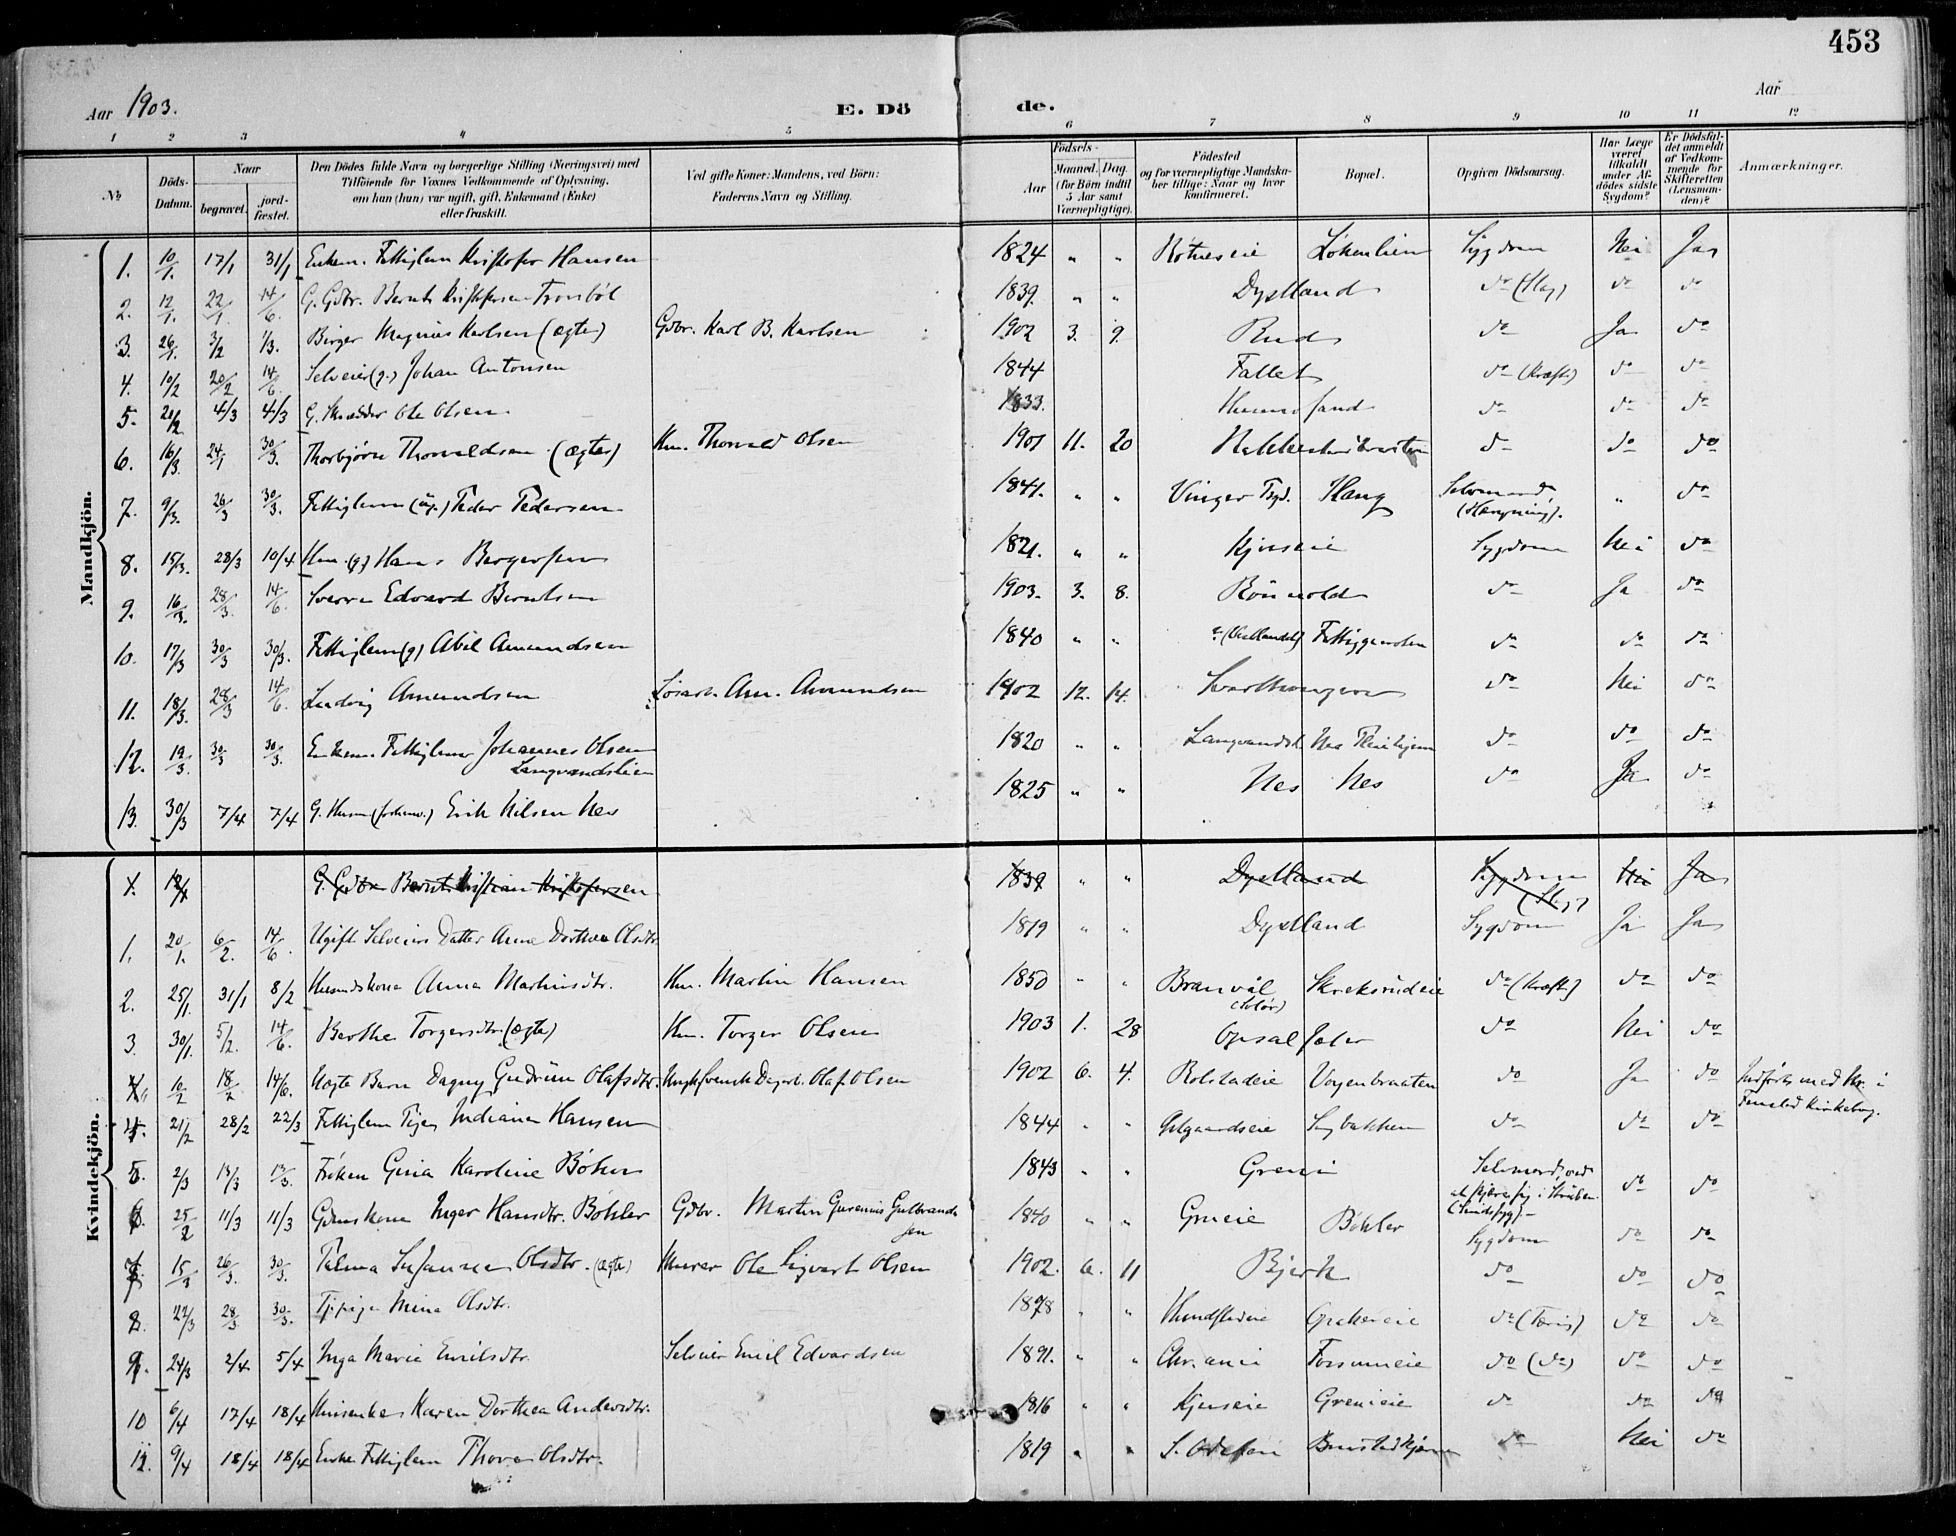 453
Aar 1903.
E. Dö de.
Aar
1 2 3 4 5 6 7 8 9 10 11 12
No
Döds-Datum.
Naar
begravet.
jord-fæstet.
Den Dödes fulde Navn og borgerlige Stilling (Næringsvei) med
Tilföiende for Voxnes Vedkommende af Oplysning,
om han (hun) var ugift, gift, Enkemand (Enke)
eller fraskilt.
Ved gifte Koner: Mandens, ved Börn:
Faderens Navn og Stilling.
Födsels-
Aar
Maaned. Dag.
(for Börn indtil
5 Aar samt
Værnepligtige).
Födested
og for værnepligtige Mandska-
ber tillige: Naar og hvor
konfirmeret.
Bopæl.
Opgiven Dödsaarsag.
Har Læge
været
tilkaldt
under Af-
dödes sidste
Sygdom?
Er Dödsfal-
det anmeldt
af Vedkom-
mende for
Skifteretten
(Lensman-
den)?
Anmærkninger.
Mandkjön.
1. 10/1. 17/1 31/1 Enkem. Fattiglem Kristofer Hansen 1824 " " Rotneseie Løkenlien Sygdom Nei Ja
2. 12/1. 22/1 14/6. G. Gdbr. Bernt Kristofersen Tronbøl 1839. " " Dystland do (Slag) do do
3. 26/1. 3/2 1/3. Birger Magnus Karlsen (ægte) Gdbr. Karl B. Karlsen 1902 3. 9. Rud do Ja do
4. 10/2 20/2 14/6. Selveier (g.) Johan Antonsen 1844 Fallet do (Kræft) do do
5. 20/2 4/3 4/3 G. Skrædder Ole Olsen 1833. do do do
6. 16/3. 24/1 30/3. Thorbjørn Thorvaldsen (ægte) Hm. Thorvald Olsen 1901 11. 20 do do do
7. 9/3. 26/3 30/3. Fattiglem (ug.) Peder Pedersen 1841. " " Vinger Pgd. Haug Selvmord, (Hængning). " do
8. 15/3. 28/3 10/4 Hm. (g.) Hans Bergersen 1821. " " Kjoseie Sygdom Nei do
9. 16/3. 28/3. 14/6. Sverre Edvard Berntsen 1903. 3. 8. do Ja do
10. 17/3 30/3 30/3. Fattiglem (g) Abel Amundsen 1840 " " Fattiggaarden do do do
11. 18/3. 28/3 14/6. Ludvig Amundsen Løsarb. Am. Amundsen 1902 12. 14. do Nei do
12. 19/3. 30/3 30/3. Enkem. Fattiglem Johannes Olsen
Langvandslien 1820 " " do do do
13. 30/3 7/4 7/4 G. Husm (forhenv.) Erik Nilsen Nes 1825 " " Nes Nes do Ja do
Kvindekjön.
1. 12/1 G. Gdbr. Bernt Kristian Kristofersen 1839 " " Dystland Sygdom (Slag) Nei Ja
1. 20/1. 6/2. 14/6. Ugift Selveiers Datter Anne Dorthea Olsdtr. 1819 " " Dystland Sygdom Ja Ja
2. 25/1. 31/1 8/2 Husmdskone Anna Martinsdtr. Hm. Martin Hansen 1850 " " Branvål (Solør) Skreksrudeie do (Kræft) do do
3. 30/1. 5/2. 14/6. Berthe Torgersdtr. (ægte) Hm. Torger Olsen 1903 1. 28 Opsal do Nei do
4. 10/2 18/2 14/6. Uægte Barn Dagny Gudrun Olafsdtr. Ungk. Svensk Dagarb. Olaf Olsen 1902 6. 4. Rolstadeie Voyenbraaten do Ja do Indført med Nr. i
Fenstad Kirkebog.
4. 21/2 28/2 22/3 Fattiglem Pige Indiana Hansen 1844 " " do do do
5. 2/3 13/3 13/3. Frøken Gina Karoline Bøhn 1843 " " Greni Selvmord, ved
at skjære sig i Struben.
(Sindssyg). do do
6. 25/2 11/3 11/3 Gdmskone Inger Hansdtr. Böhler Gdbr. Martin Gulbrand-
sen 1840 " " Grueie Böhler Sygdom do do
7. 15/3 26/3. 30/3. Palma Susanna Olsdtr. (ægte) Murer Ole Sigvart Olsen 1902. 6. 11 Bjerk do do do
8. 22/3 28/3 30/3. Mina Olsdtr. 1878 " " do (Tæring) do do
9. 24/3 2/4 5/4 Inga Marie Emilsdtr. Selveier Emil Edvardsen 1891. " " Chr.ania do (do) do do
10 6/4 17/4 18/4 Karen Dorthea Andersdtr. 1816 " " Kjoseie Grenieie do do do
11. 9/4 18/4 18/4 Enke Fattiglem Thora Olsdtr. 1819 " " S. Odalen do Nei do